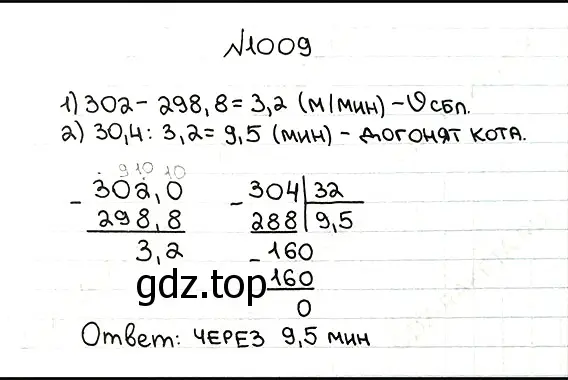 №1009
1) 302 - 298,8 = 3,2 (м/мин) - υ сбл.
2) 30,4 : 3,2 = 9,5 (мин) - догонят кота.
9 10 10
- 302,0 - 304 | 32
298,8 288 | 9,5
3,2 - 160
160
0
gdz.top
Ответ: через 9,5 мин